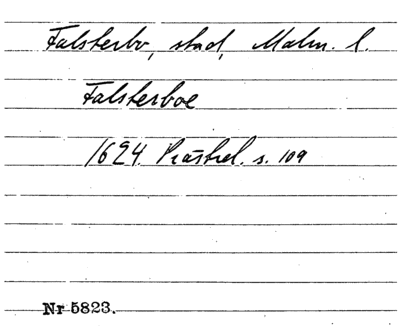 Falsterbo, stad, Malm. l.
Falsterboe
1624 Prästrel. s. 109
Nr 5823.